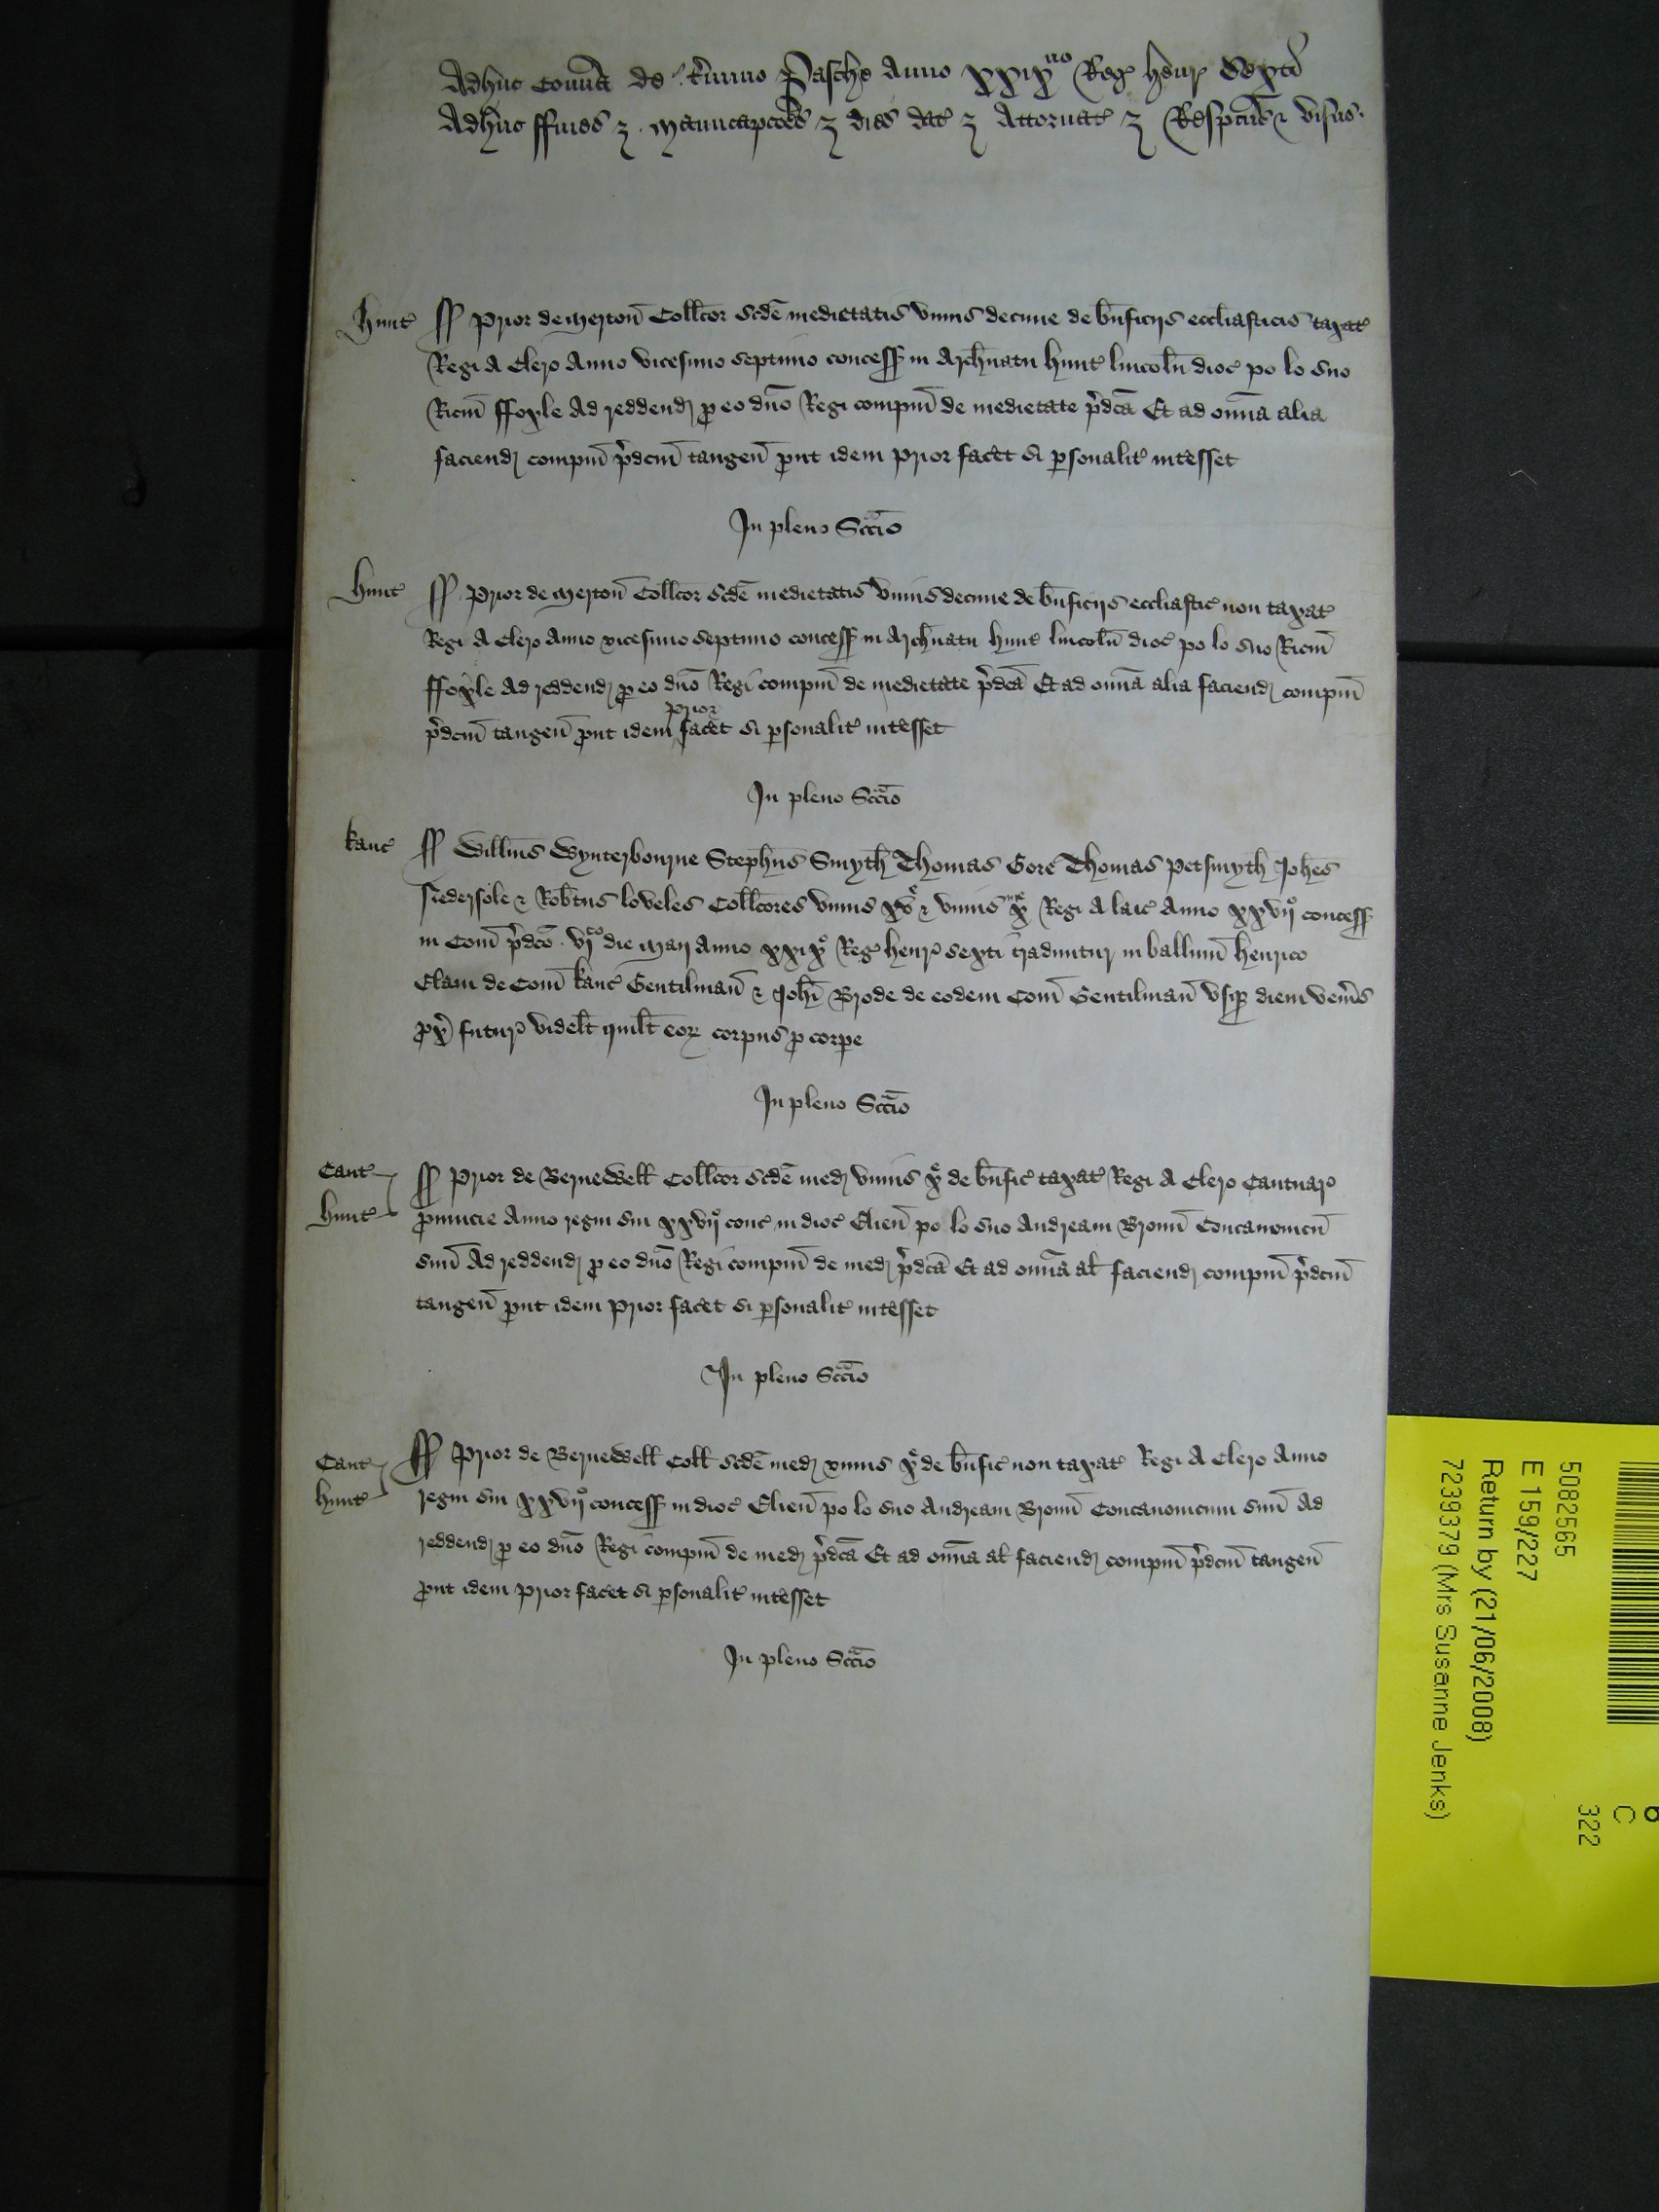 Adhuc Comuͥa de Tͥmino Pasche Anno xxixno Regꝭ henrꝭ Sexti
Adhuc ffines ⁊ Manucapcoēs ⁊ dies datꝭ ⁊ Attornatꝭ ⁊ Respcūs ⁊ visus
huntꝭ
ſſ Prior de Merton̄ Coll̄cor Scdē medietatis vnius decime de bn̄ficijs eccliasticis taxatꝭ
Regi A Clero Anno vicesimo septimo concess̄ in Archn̄atu huntꝭ lincoln̄ diocꝭ po lo suo
Ricm̄ ffoxle Ad reddend ꝓ eo dnō Regi compm̄ de medietate p̄dcā Et ad om̄ia alia
faciend compm̄ p̄dcm̄ tangen̄ ꝓut idem Prior facet si ꝑsonalitꝭ int̄esset
In pleno Scc̄io
huntꝭ
ſſ Prior de Merton̄ Coll̄cor Scdē medietatis vnius decime de bn̄ficijs eccliasticꝭ non taxatꝭ
Regi A Clero Anno vicesimo septimo concess̄ in Archn̄atu huntꝭ lincoln̄ diocꝭ po lo suo Ricm̄
ffoxle Ad reddend ꝓ eo dnō Regi compm̄ de medietate p̄dcā Et ad om̄ia alia faciend compm̄
prior
p̄dcm̄ tangen̄ ꝓut idem facet si ꝑsonalitꝭ int̄esset
In pleno Scc̄io
kancꝭ
ſſ Willm̄s Wynterbourne Stephūs Smyth Thomas Gore Thomas Petsmyth Joh̄es
Robt̄us loveles Coll̄cores vnius xve ⁊ vnius xe Regi A laicꝭ Anno xxvijo concess̄
in Com̄ p̄dcō vjto die Maij Anno xxixo Regꝭ henrꝭ sexti traduntur in ballium̄ henrico
Clam de Com̄ kancꝭ Gentilman̄ ⁊ Joh̄i Brode de eodem Com̄ Gentilman̄ vsqꝫ diem ven̄is
ꝓx̄ futurꝭ videlt̄ quilt̄ eoꝝ corpus ꝓ corpe
In pleno Scc̄io
Cantꝭ
huntꝭ
ſſ Prior de Bernewell Coll̄cor scdē med vnius xe de bn̄ficꝭ taxatꝭ Regi A Clero Cantuarꝭ
ꝓuincie Anno regni sui xxvijo concꝭ in diocꝭ Elien̄ po lo suo Andream Brom̄ Concanonicū
suū Ad reddend ꝓ eo dnō Regi compm̄ de med p̄dcā Et ad om̄ia al̄ faciend compm̄ p̄dcm̄
tangen̄ ꝓut idem Prior facet si ꝑsonalitꝭ int̄esset
In pleno Scc̄io
Cantꝭ
huntꝭ
ſſ Prior de Bernewell Coll̄ scdē med vnius xe de bn̄ficꝭ non taxatꝭ Regi A Clero Anno
regni sui xxvijo concess̄ in diocꝭ Elien̄ po lo suo Andream Brom̄ Concanonicum suū Ad
reddend ꝓ eo dnō Regi compm̄ de med p̄dcā Et ad om̄ia al̄ faciend compm̄ p̄dcm̄ tangen̄
ꝓut idem Prior facet si ꝑsonalitꝭ int̄esset
In pleno Scc̄io
C
322
5082565
E 159/227
Return by (21/06/2008)
7239379 (Mrs Susanne Jenks)